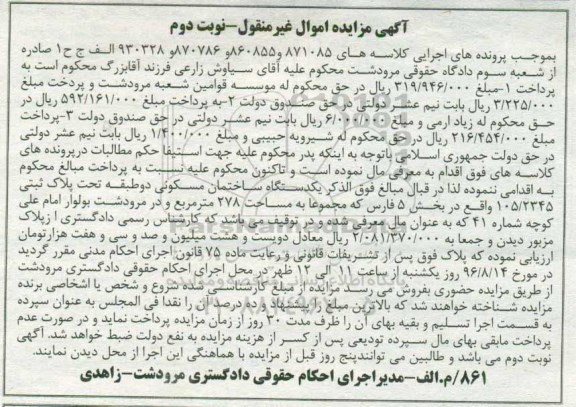 آگهی مزایده اموال غیرمنقول-نوبت دوم
بموجب پرونده های اجرایی کلاسه های ۸۷۱۰۸۵ و۸۶۰۸۵۵و ۸۷۰۷۸۶و ۹۳۰۳۲۸ الف ج ح۱ صادره
از شعبه سوم دادگاه حقوقی مرودشت محکوم علیه آقای سیاوش زارعی فرزند آقابزرگ محکوم است به
پرداخت ۱-مبلغ ۳۱۹/۹۴۶/۰۰۰ ریال در حق محکوم له موسسه قوامین شعبه مرودشت و پردخت مبلغ
۳/۲۲۵/۰۰۰ ریال بابت نیم عشر دولتی در حق صندوق دولت ۲-به پرداخت مبلغ ۵۹۲/۱۶۱/۰۰۰ ریال در
حق محکوم له زیاد ارمی و مبلغ ریال بابت نیم عشر دولتی در حق صندوق دولت ۳-پرداخت
مبلغ ۲۱۶/۴۵۴/۰۰۰ ریال در حق محکوم له شیرویه حبیبی و مبلغ ۱/۴۰۰/۰۰۰ ریال بابت نیم عشر دولتی
در حق دولت جمهوری اسلامی باتوجه به اینکه پدر محکوم علیه جهت استیفا حکم مطالبات درپرونده های
کلاسه های فوق اقدام به معرفی مال نموده است و تاکنون محکوم علیه نسبت به پرداخت مبالغ محکوم
به اقدامی ننموده لذا در قبال مبالغ فوق الذکر یکدستگاه ساختمان مسکونی دوطبقه تحت پلاک ثبتی
۱۰۵/۲۳۴۵ واقع در بخش ۵ فارس که مجموعا به مساحت ۲۷۸ مترمربع و در مرودشت بولوار امام علی
کوچه شماره ۴۱ که به عنوان مال معرفی شده و در توقیف می باشد که کارشناس رسمی دادگستری ا زپلاک
مزبور دیدن و جمعا به ۲/۰۸۱/۳۷۰/۰۰۰ ریال معادل دویست و هشت میلیون و صد و سی و هفت هزارتومان
ارزیابی نموده که پلاک فوق پس از تشریفات قانونی و رعایت ماده ۷۵ قانون اجرای احکام مدنی مقرر گردید
در مورخ ۹۶/۸/۱۴ روز یکشنبه از ساعت ۱۱ الی ۱۲ ظهر در محل اجرای احکام حقوقی دادگستری مرودشت
از طریق مزایده حضوری بفروش می رسد مزایده از مبلغ کارشناسی شده شروع و شخص یا اشخاصی برنده
مزایده شناخته خواهند شد که بالاترین مبلغ را پیشنهاد و ده درصد آن را نقدا فی المجلس به عنوان سپرده
به قسمت اجرا تسلیم و بقیه بهای آن را ظرف مدت ۳۰ روز از زمان مزایده پرداخت نماید و در صورت عدم
پرداخت مابقی بهای مال سپرده تودیعی پس از کسر از هزینه مزایده به نفع دولت ضبط خواهد شد. آگهی
نوبت دوم می باشد و طالبین می توانندپنج روز قبل از مزایده با هماهنگی این اجرا از محل دیدن نمایند.
۸۶۱/م.الف-مدیراجرای احکام حقوقی دادگستری مرودشت-زاهدی